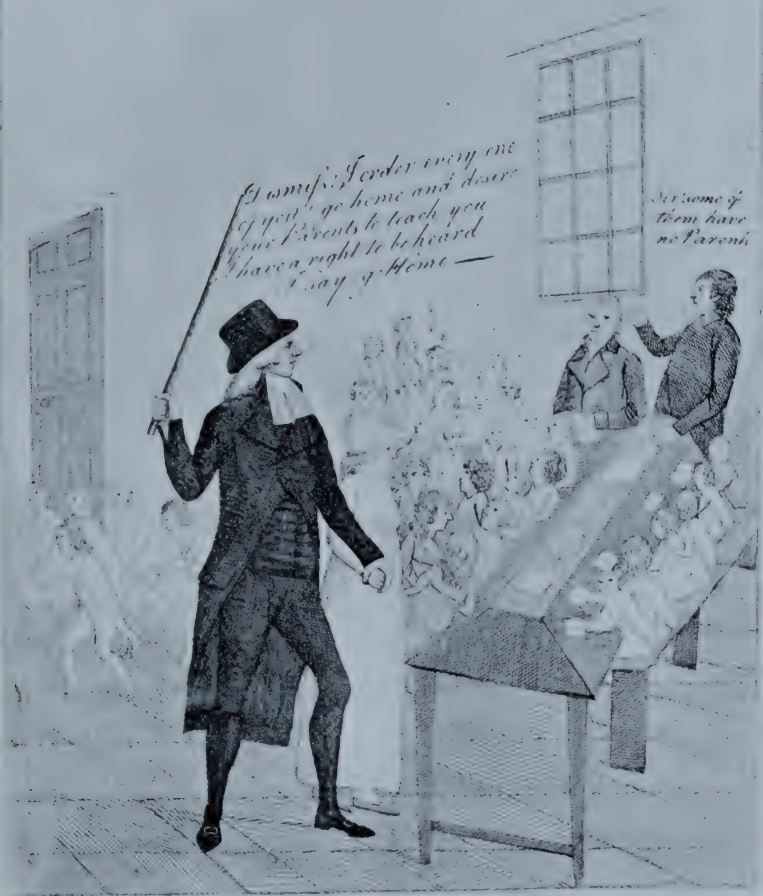 Dismiss, I order every one
of you, go home and desire
your Parents to teach you
I have a right to be heard
I say go Home —
Sir some of
them have
no Parents